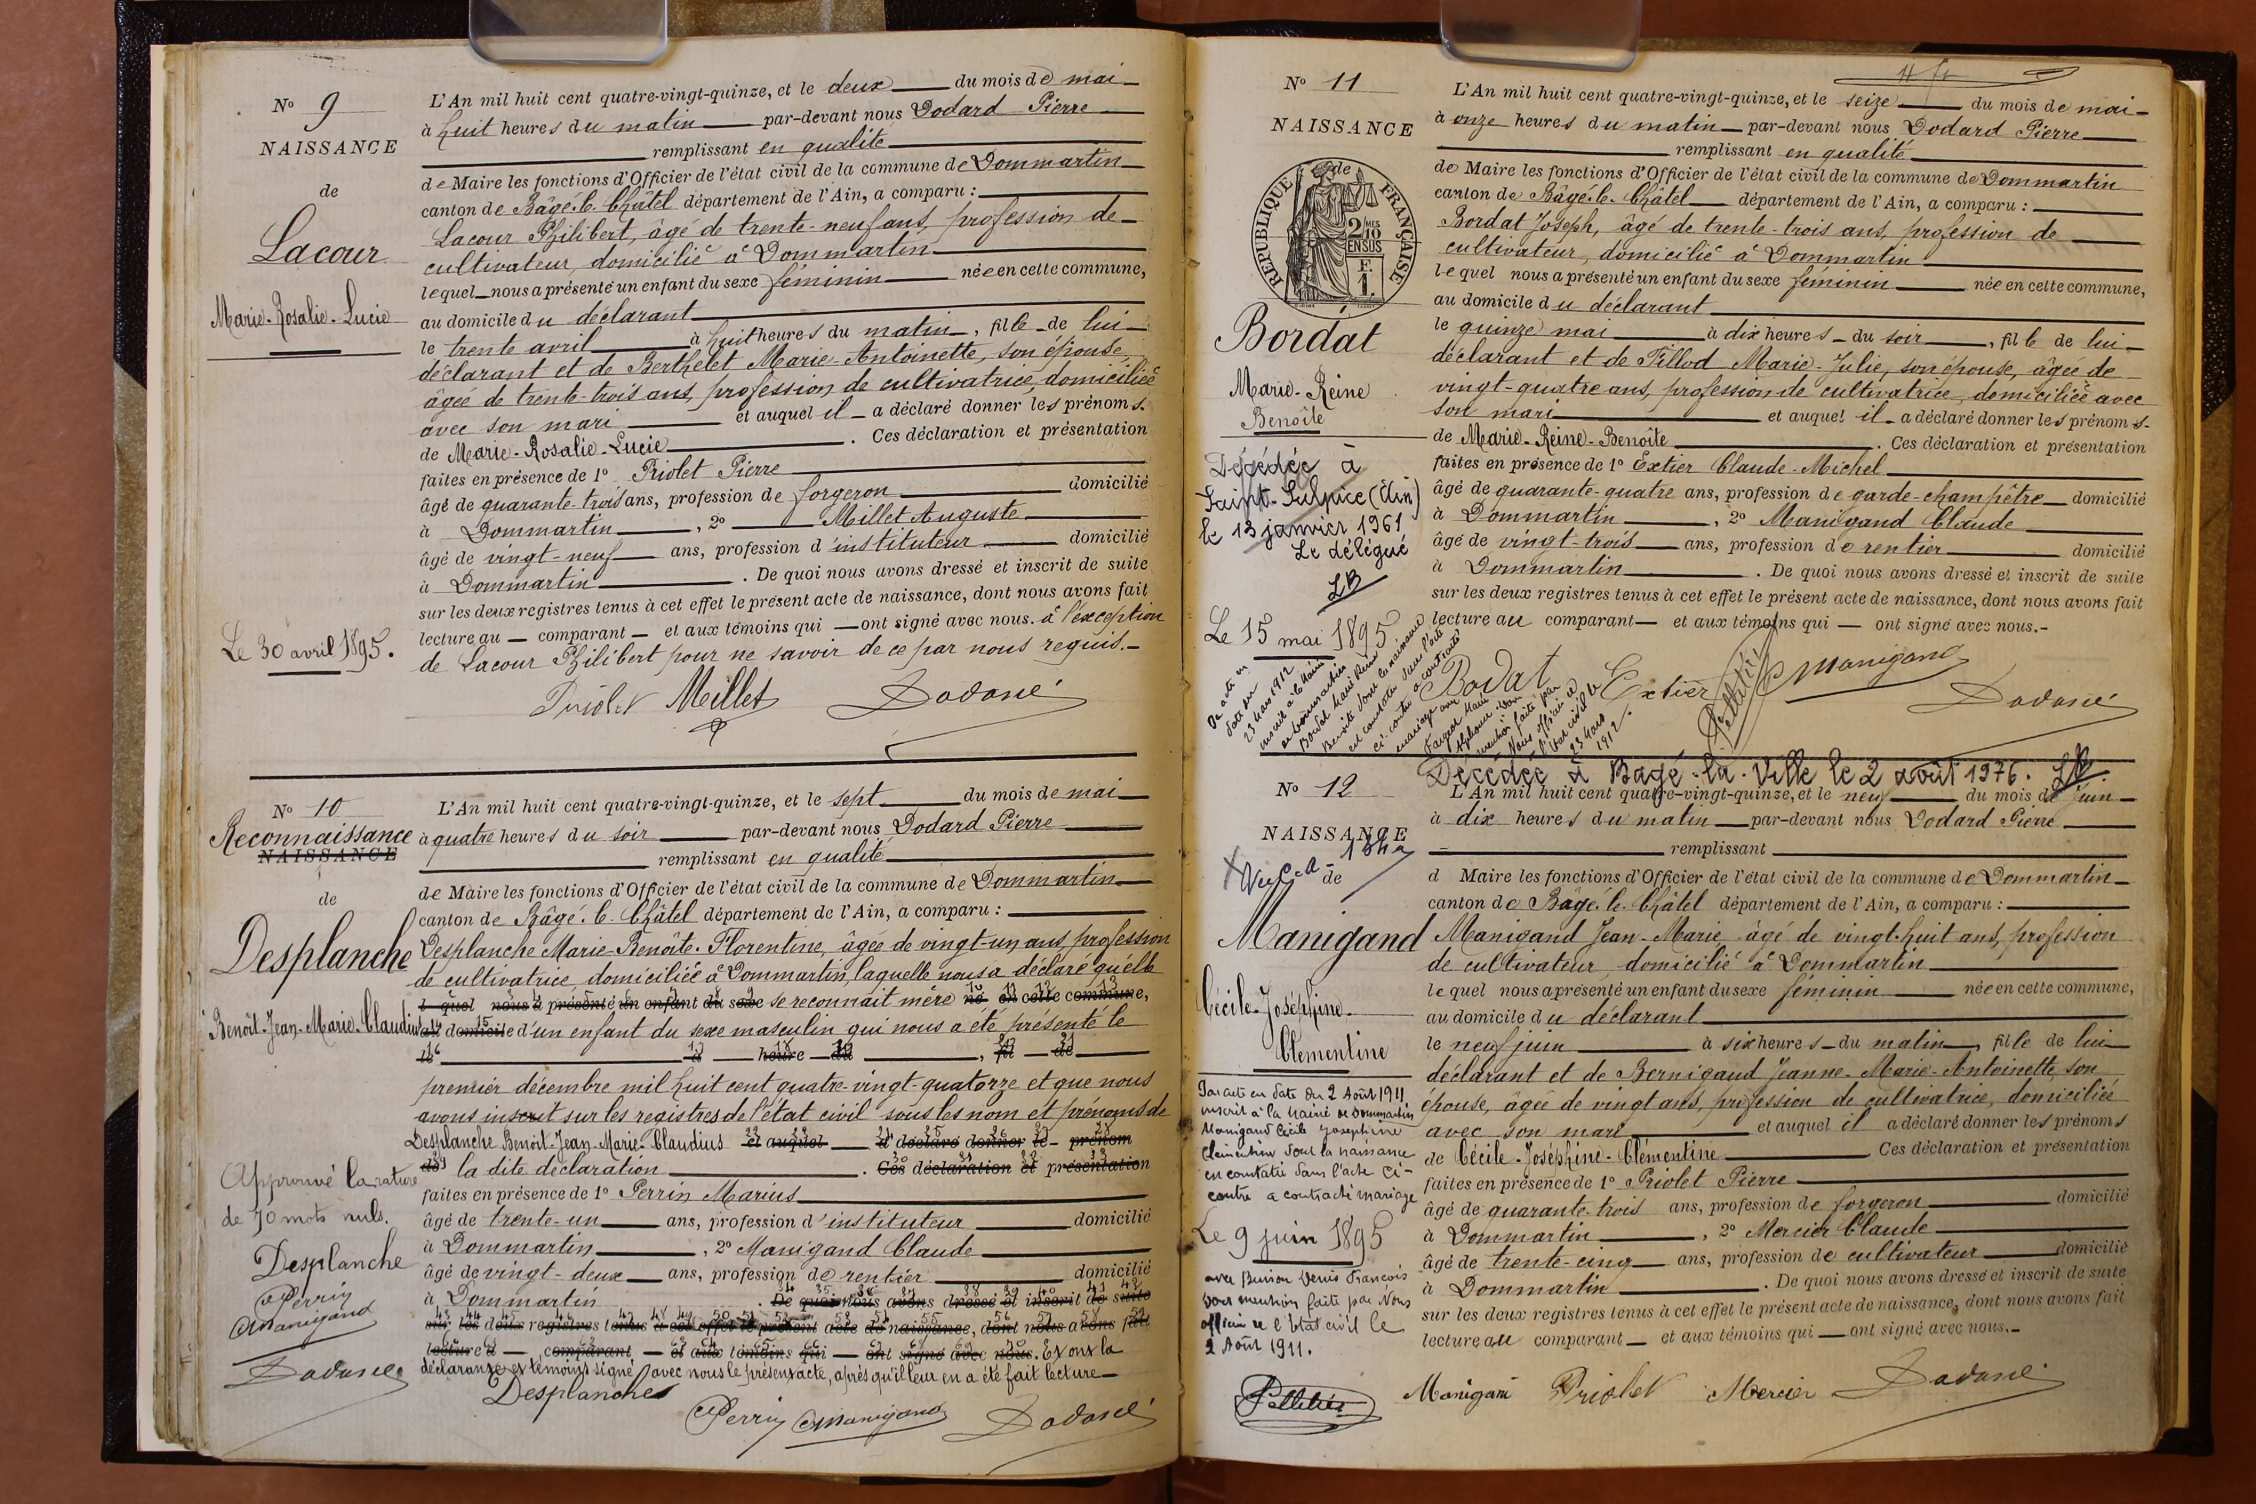 N° 9
NAISSANCE
de
Lacour
Marie-Rosalie-Lucie
Le 30 avril 1895.
L'An mil huit cent quatre-vingt-quinze, et le deux du mois de mai
à huit heures du matin par-devant nous Dodard Pierre
remplissant en qualité
de Maire les fonctions d'Officier de l'état civil de la commune de Dommartin
canton de Bâgé-le-Châtel département de l'Ain, a comparu :
Lacour Philibert, âgé de trente-neuf ans, profession de
cultivateur, domicilié à Dommartin
lequel nous a présenté un enfant du sexe féminin née en cette commune,
au domicile du déclarant
le trente avril à huit heures du matin, fille de lui
déclarant et de Berthelet Marie-Antoinette, son épouse,
âgée de trente-trois ans, profession de cultivatrice, domiciliée
avec son mari et auquel il a déclaré donner les prénoms
de Marie-Rosalie-Lucie. Ces déclaration et présentation
faites en présence de 1° Priolet Pierre
âgé de quarante-trois ans, profession de forgeron domicilié
à Dommartin, 2° Millet Auguste
âgé de vingt-neuf ans, profession d'instituteur domicilié
à Dommartin. De quoi nous avons dressé et inscrit de suite
sur les deux registres tenus à cet effet le présent acte de naissance, dont nous avons fait
lecture au comparant et aux témoins qui ont signé avec nous. à l'exception
de Lacour Philibert pour ne savoir de ce par nous requis.
Priolet Millet Dodard
N° 10
Reconnaissance
NAISSANCE
de
Desplanche
Benoît-Jean-Marie-Claudius
Approuvé la rature
de 70 mots nuls.
Desplanche
Perrin
Manigand
Dodard
L'An mil huit cent quatre-vingt-quinze, et le sept du mois de mai
à quatre heures du soir par-devant nous Dodard Pierre
remplissant en qualité
de Maire les fonctions d'Officier de l'état civil de la commune de Dommartin
canton de Bâgé-le-Châtel département de l'Ain, a comparu :
Desplanche Marie-Benoîte-Florentine, âgée de vingt-un ans, profession
de cultivatrice, domiciliée à Dommartin, laquelle nous a déclaré qu'elle
lequel nous a présenté un enfant du sexe se reconnaît mère né en cette commune,
au domicile d'un enfant du sexe masculin qui nous a été présenté le
le à heure du, fil de
premier décembre mil huit cent quatre-vingt-quatorze et que nous
avons inscrit sur les registres de l'état civil sous les nom et prénoms de
Desplanche Benoît-Jean-Marie-Claudius et auquel il a déclaré donner le prénom
de la dite déclaration. Ces déclaration et présentation
faites en présence de 1° Perrin Marius
âgé de trente-un ans, profession d'instituteur domicilié
à Dommartin, 2° Manigand Claude
âgé de vingt-deux ans, profession de rentier domicilié
à Dommartin. De quoi nous avons dressé et inscrit de suite
sur les deux registres tenus à cet effet le présent acte de naissance, dont nous avons fait
lecture à comparant et aux témoins qui ont signé avec nous. Et ont la
déclarante et témoins signé avec nous le présent acte, après qu'il leur en a été fait lecture
Desplanches
Perrin Manigand Dodard
N° 11
NAISSANCE
de
RÉPUBLIQUE FRANÇAISE
2 MES
10
EN SUS
F.
1.
Bordat
Marie-Reine
Benoîte
Décédée à
Saint-Sulpice (Ain)
le 13 janvier 1961
Le délégué
LB
Le 15 mai 1895
Par acte en
date du
23 Mars 1912
inscrit à la Mairie
de Dommartin
Bordat Marie Reine
Benoîte dont la naissance
est constatée dans l'acte
ci-contre a contracté
mariage avec
mention faite par
Nous officier de
l'état civil le
23 Mars
1912.
Pelletier
L'An mil huit cent quatre-vingt-quinze, et le seize du mois de mai
à onze heures du matin par-devant nous Dodard Pierre
remplissant en qualité
de Maire les fonctions d'Officier de l'état civil de la commune de Dommartin
canton de Bâgé-le-Châtel département de l'Ain, a comparu :
Bordat Joseph, âgé de trente-trois ans, profession de
cultivateur, domicilié à Dommartin
lequel nous a présenté un enfant du sexe féminin née en cette commune,
au domicile du déclarant
le quinze mai à dix heures du soir, fille de lui
déclarant et de Pillod Marie-Julie, son épouse, âgée de
vingt-quatre ans, profession de cultivatrice, domiciliée avec
son mari et auquel il a déclaré donner les prénoms
de Marie-Reine-Benoîte. Ces déclaration et présentation
faites en présence de 1° Extier Claude-Michel
âgé de quarante-quatre ans, profession de garde-champêtre domicilié
à Dommartin, 2° Manigand Claude
âgé de vingt-trois ans, profession de rentier domicilié
à Dommartin. De quoi nous avons dressé et inscrit de suite
sur les deux registres tenus à cet effet le présent acte de naissance, dont nous avons fait
lecture au comparant et aux témoins qui ont signé avec nous.
Bordat Extier Manigand
Dodard
Décédée à Bagé-la-Ville le 2 août 1976. LB.
N° 12
NAISSANCE
de
Manigand
Cécile-Joséphine-
Clémentine
Par acte en date du 2 Août 1911
inscrit à la Mairie de Dommartin
Manigand Cécile Joséphine
Clémentine dont la naissance
est constatée dans l'acte ci-
contre a contracté mariage
Le 9 juin 1895
avec Buiron Denis François
Dont mention faite par Nous
officier de l'état civil le
2 Août 1911.
Pelletier
L'An mil huit cent quatre-vingt-quinze, et le neuf du mois de juin
à dix heures du matin par-devant nous Dodard Pierre
remplissant
d Maire les fonctions d'Officier de l'état civil de la commune de Dommartin
canton de Bâgé-le-Châtel département de l'Ain, a comparu :
Manigand Jean-Marie âgé de vingt-huit ans, profession
de cultivateur, domicilié à Dommartin
lequel nous a présenté un enfant du sexe féminin née en cette commune,
au domicile du déclarant
le neuf juin à six heures du matin, fille de lui
déclarant et de Bernigaud Jeanne-Marie-Antoinette, son
épouse, âgée de vingt ans, profession de cultivatrice, domiciliée
avec son mari et auquel il a déclaré donner les prénoms
de Cécile-Joséphine-Clémentine Ces déclaration et présentation
faites en présence de 1° Priolet Pierre
âgé de quarante-trois ans, profession de forgeron domicilié
à Dommartin, 2° Mercier Claude
âgé de trente-cinq ans, profession de cultivateur domicilié
à Dommartin. De quoi nous avons dressé et inscrit de suite
sur les deux registres tenus à cet effet le présent acte de naissance, dont nous avons fait
lecture au comparant et aux témoins qui ont signé avec nous.
Manigand Priolet Mercier Dodard